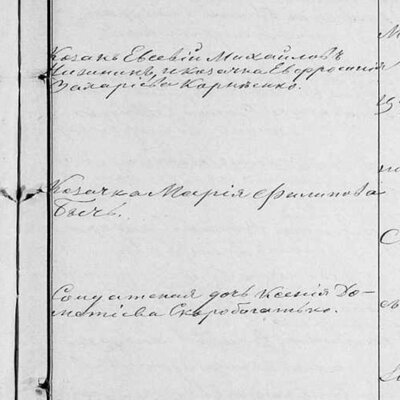 Козакъ Евсевій Михайловъ
и козачка Евфросинія
Захаріева
Козачка Марія Филипова
Бычъ.
Солдатская дочь Ксенія До-
метіева Скоробогатько.